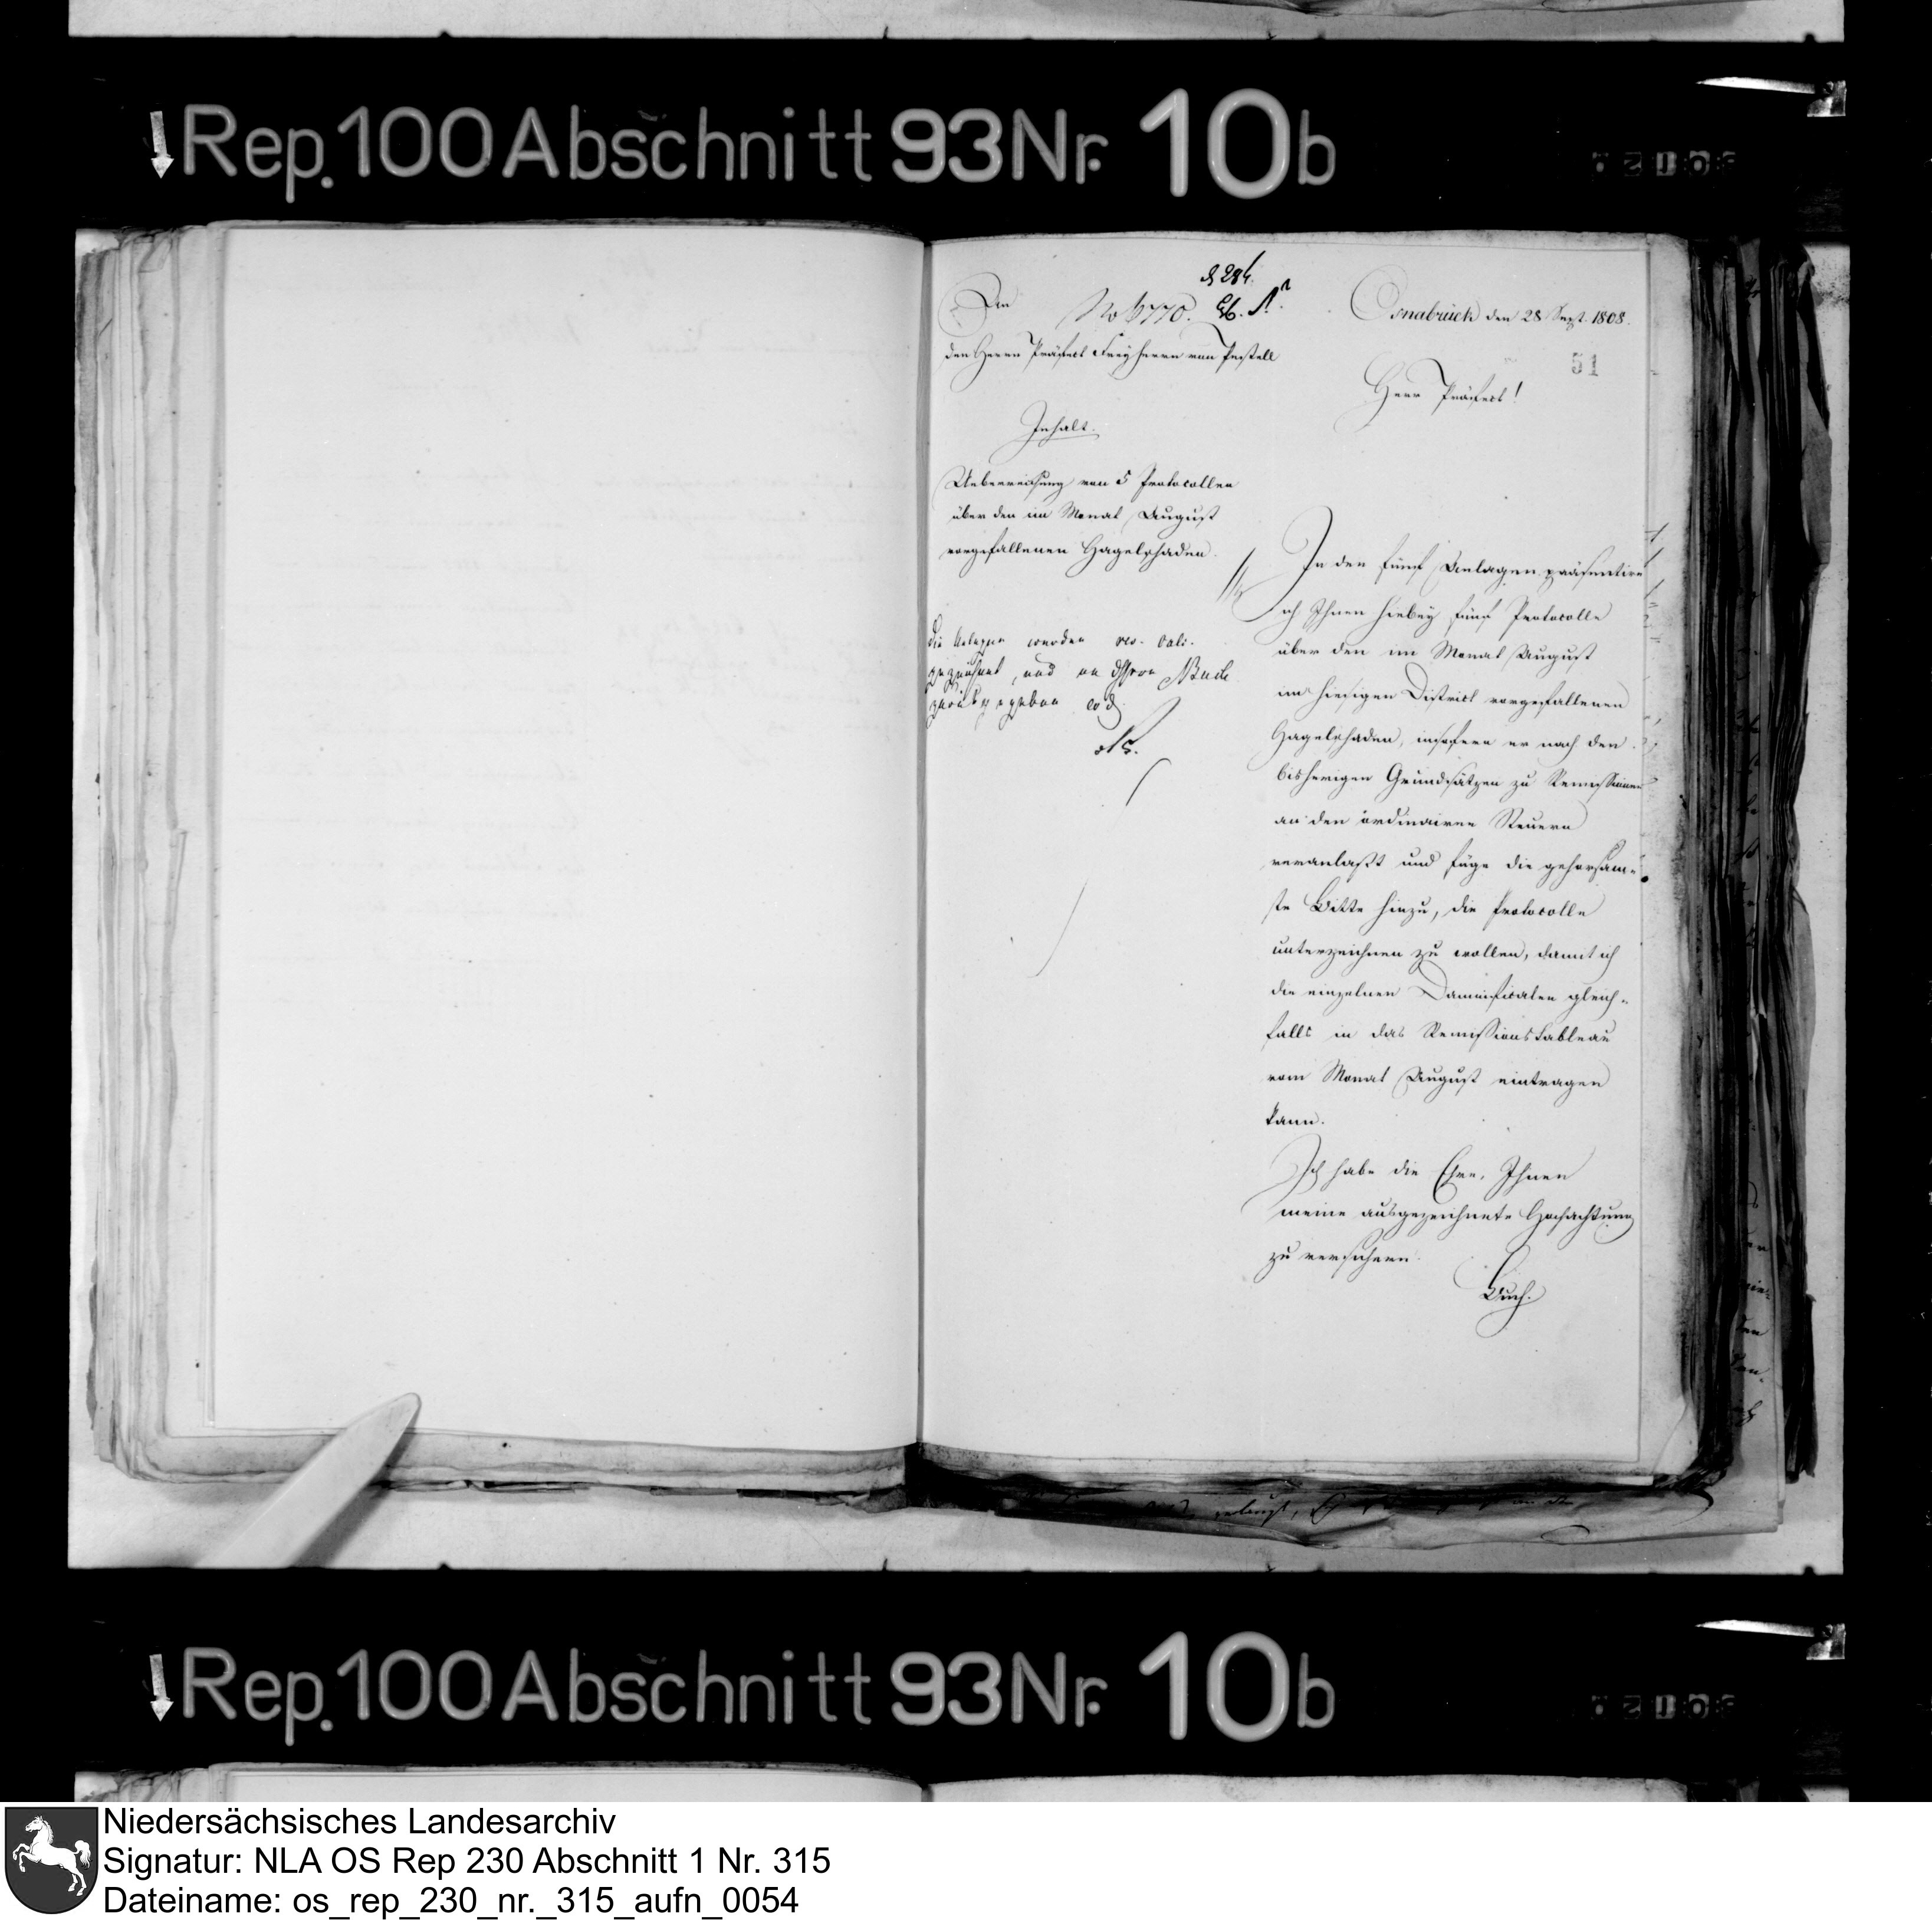 Rep. 100 Abschnitt 93 Nr. 10b
An
No 6770.
den Herrn Präfect Freyherrn von Pestell
Inhalt.
Ueberreichung von 5 Protocollen
über den im Monat August
vorgefallenen Hagelschaden.
Die Anlagen werden
gezeichnet, und an Herrn Buch
zurückgegeben
Osnabrück den 28 Sept. 1808.
51
Herr Präfect!
In den fünf Anlagen präsentire
ich Ihnen hiebey fünf Protocolle
über den im Monat August
im hiesigen District vorgefallenen
Hagelschaden, insofern er nach den
bisherigen Grundsätzen zu Remissionen
an den ordinairen Steuern
veranlaßt und füge die gehorsam-
ste Bitte hinzu, die Protocolle
unterzeichnen zu wollen, damit ich
die einzelnen Damnificaten gleich-
falls in das Remissionstableau
vom Monat August eintragen
kann.
Ich habe die Ehre, Ihnen
meine ausgezeichnete Hochachtung
zu versichern.
Buch.
Rep. 100 Abschnitt 93 Nr. 10b
Niedersächsisches Landesarchiv
Signatur: NLA OS Rep 230 Abschnitt 1 Nr. 315
Dateiname: os_rep_230_nr._315_aufn_0054